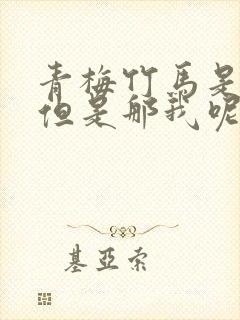 青梅竹马是
但是那我呢
基亚索